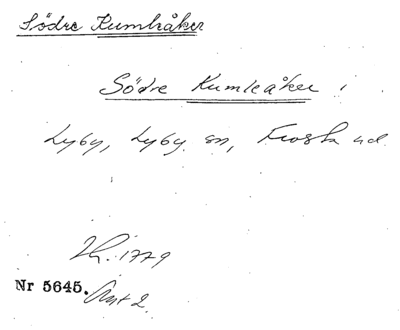 Södre Kumhåker
Södre Kumleåker i
Lyby, Lyby sn, Frosta hd.
1779
Nr 5645. Akt 2.